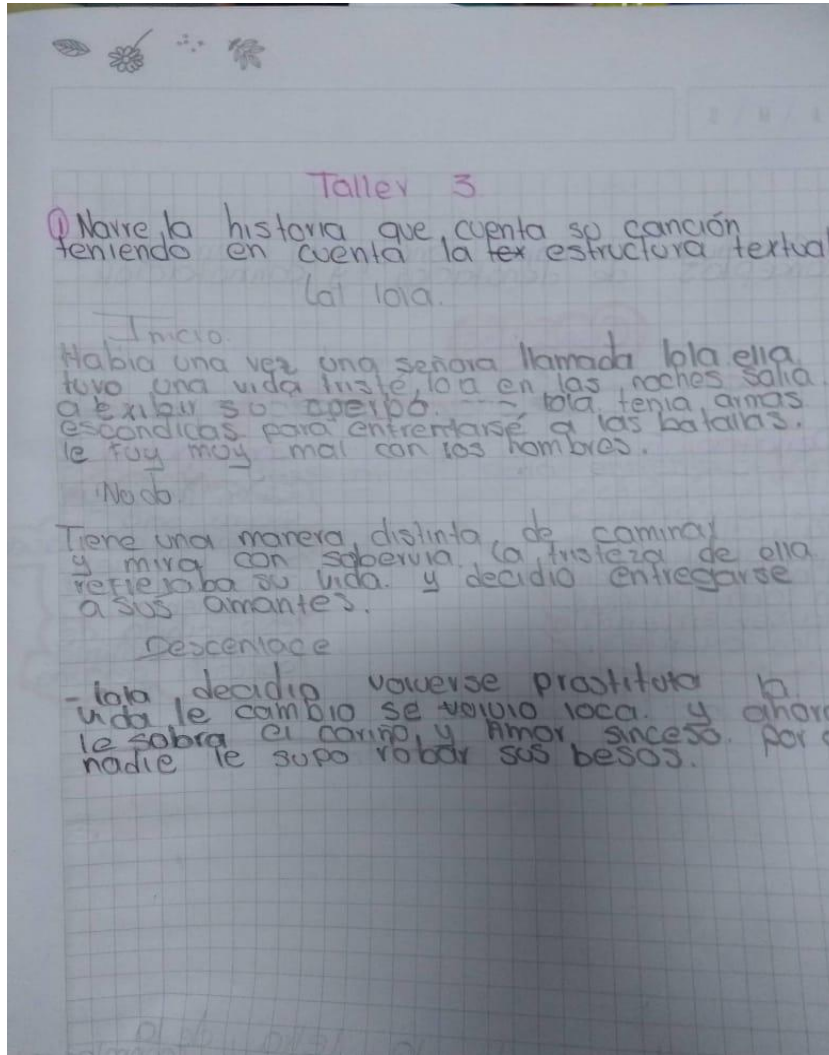 Taller 3
① Narre la historia que cuenta su canción
teniendo en cuenta la tex estructura textual
lola.
Inicio.
Habia una vez una señora llamada lola ella
tuvo una vida triste, en las noches salia
a exibir su cuerpo. lola tenia armas
escondicas para enfrentarse a las batallas.
le fuy muy mal con los hombres.
Nodo
Tiene una manera distinta de caminar
y mira con sobervia. la tristeza de ella
reflejaba su vida. y decidio entregarse
a sus amantes.
Descenlace
- lola decidio volverse prostituta la
vida le cambio se volvio loca. y
le sobra el cariño, y Amor sinceso. Por
nadie le supo robar sus besos.